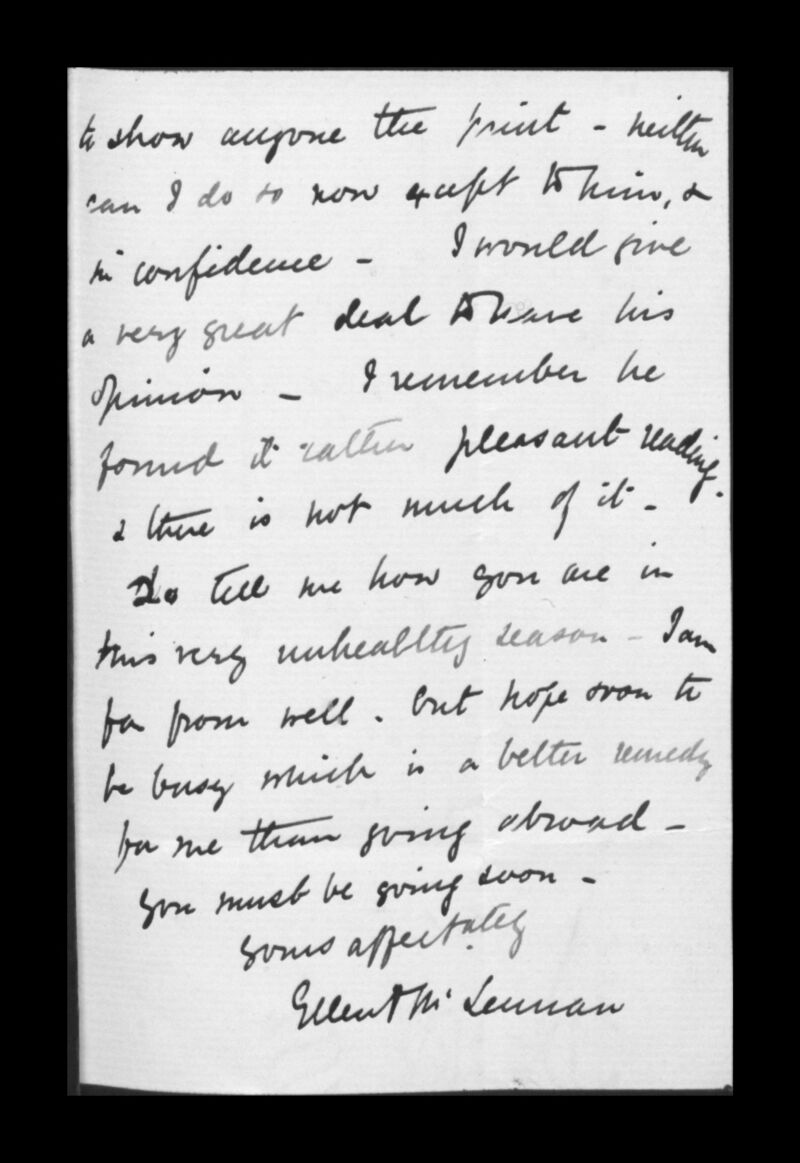 to show anyone the print - neither
can I do so now except to him, &
in confidence - I would give
a very great deal to have his
opinion - I remember he
found it rather pleasant reading.
& there is not much of it -
Do tell me how you are in
this very unhealthy season - I am
far from well . but hope soon to
be busy which is a better remedy
for me than going abroad -
you must be going soon -
yours affectately
Ellen McLennan